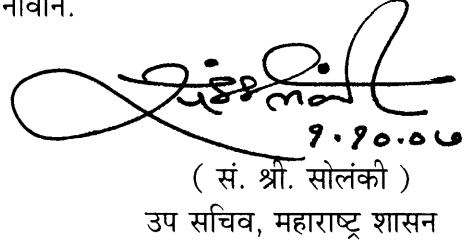 नावाने.
१.१०.०७
( सं. श्री. सोलंकी )
उप सचिव, महाराष्ट्र शासन